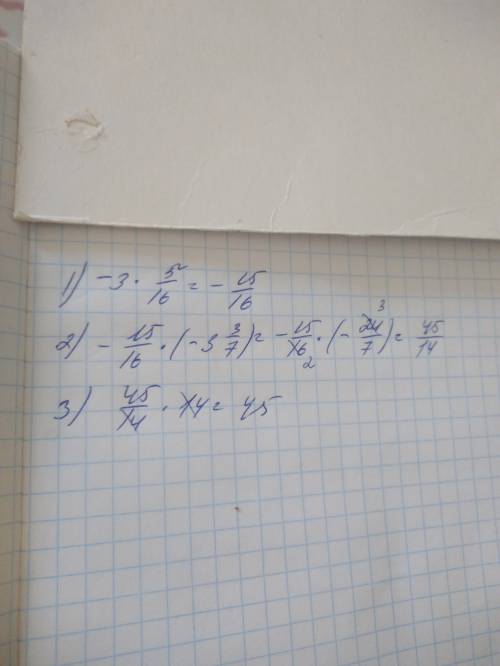 1) -3 · 5/16 = - 15/16
2) - 15/16 · (-3 3/7) = - 15/16 2 · (- 24/7 3) = 45/14
3) 45/14 · 14 = 45